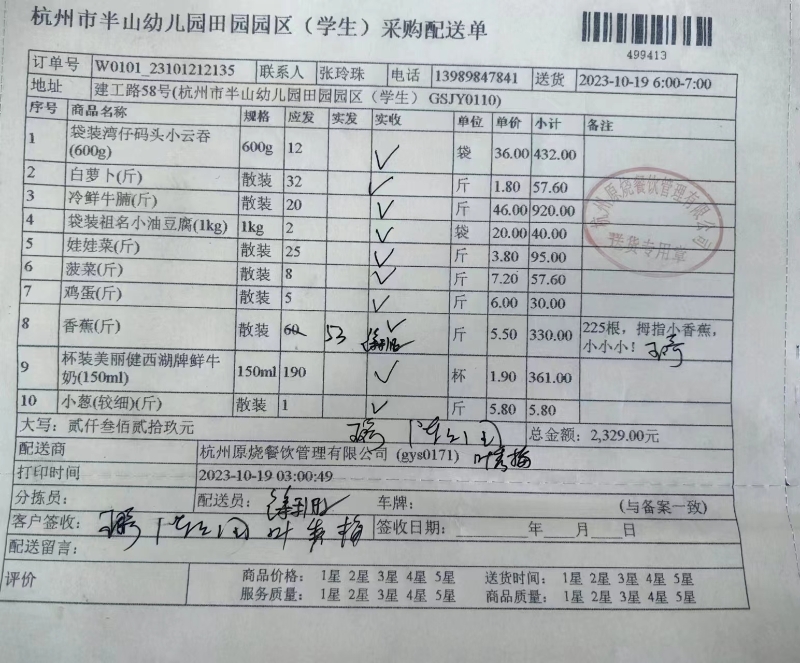 杭州市半山幼儿园田园园区（学生）采购配送单
499413
订单号 W0101_23101212135 联系人 张玲珠 电话 13989847841 送货 2023-10-19 6:00-7:00
地址 建工路58号(杭州市半山幼儿园田园园区（学生） GSJY0110)
序号 商品名称 规格 应发 实发 实收 单位 单价 小计 备注
1 袋装湾仔码头小云吞(600g) 600g 12 ✓ 袋 36.00 432.00
2 白萝卜(斤) 散装 32 ✓ 斤 1.80 57.60
3 冷鲜牛腩(斤) 散装 20 ✓ 斤 46.00 920.00
4 袋装祖名小油豆腐(1kg) 1kg 2 ✓ 袋 20.00 40.00
5 娃娃菜(斤) 散装 25 ✓ 斤 3.80 95.00
6 菠菜(斤) 散装 8 ✓ 斤 7.20 57.60
7 鸡蛋(斤) 散装 5 ✓ 斤 6.00 30.00
8 香蕉(斤) 散装 60 53 ✓ 斤 5.50 330.00 225根，拇指小香蕉，小小小！
9 杯装美丽健西湖牌鲜牛奶(150ml) 150ml 190 ✓ 杯 1.90 361.00
10 小葱(较细)(斤) 散装 1 ✓ 斤 5.80 5.80
杭州原烧餐饮管理有限公司
送货专用章
大写：贰仟叁佰贰拾玖元 总金额：2,329.00元
配送商 杭州原烧餐饮管理有限公司 (gys0171)
打印时间 2023-10-19 03:00:49
分拣员： 配送员： 车牌： (与备案一致)
客户签收： 签收日期：________年____月____日
配送留言：
评价 商品价格： 1星 2星 3星 4星 5星 送货时间： 1星 2星 3星 4星 5星
服务质量： 1星 2星 3星 4星 5星 商品质量： 1星 2星 3星 4星 5星